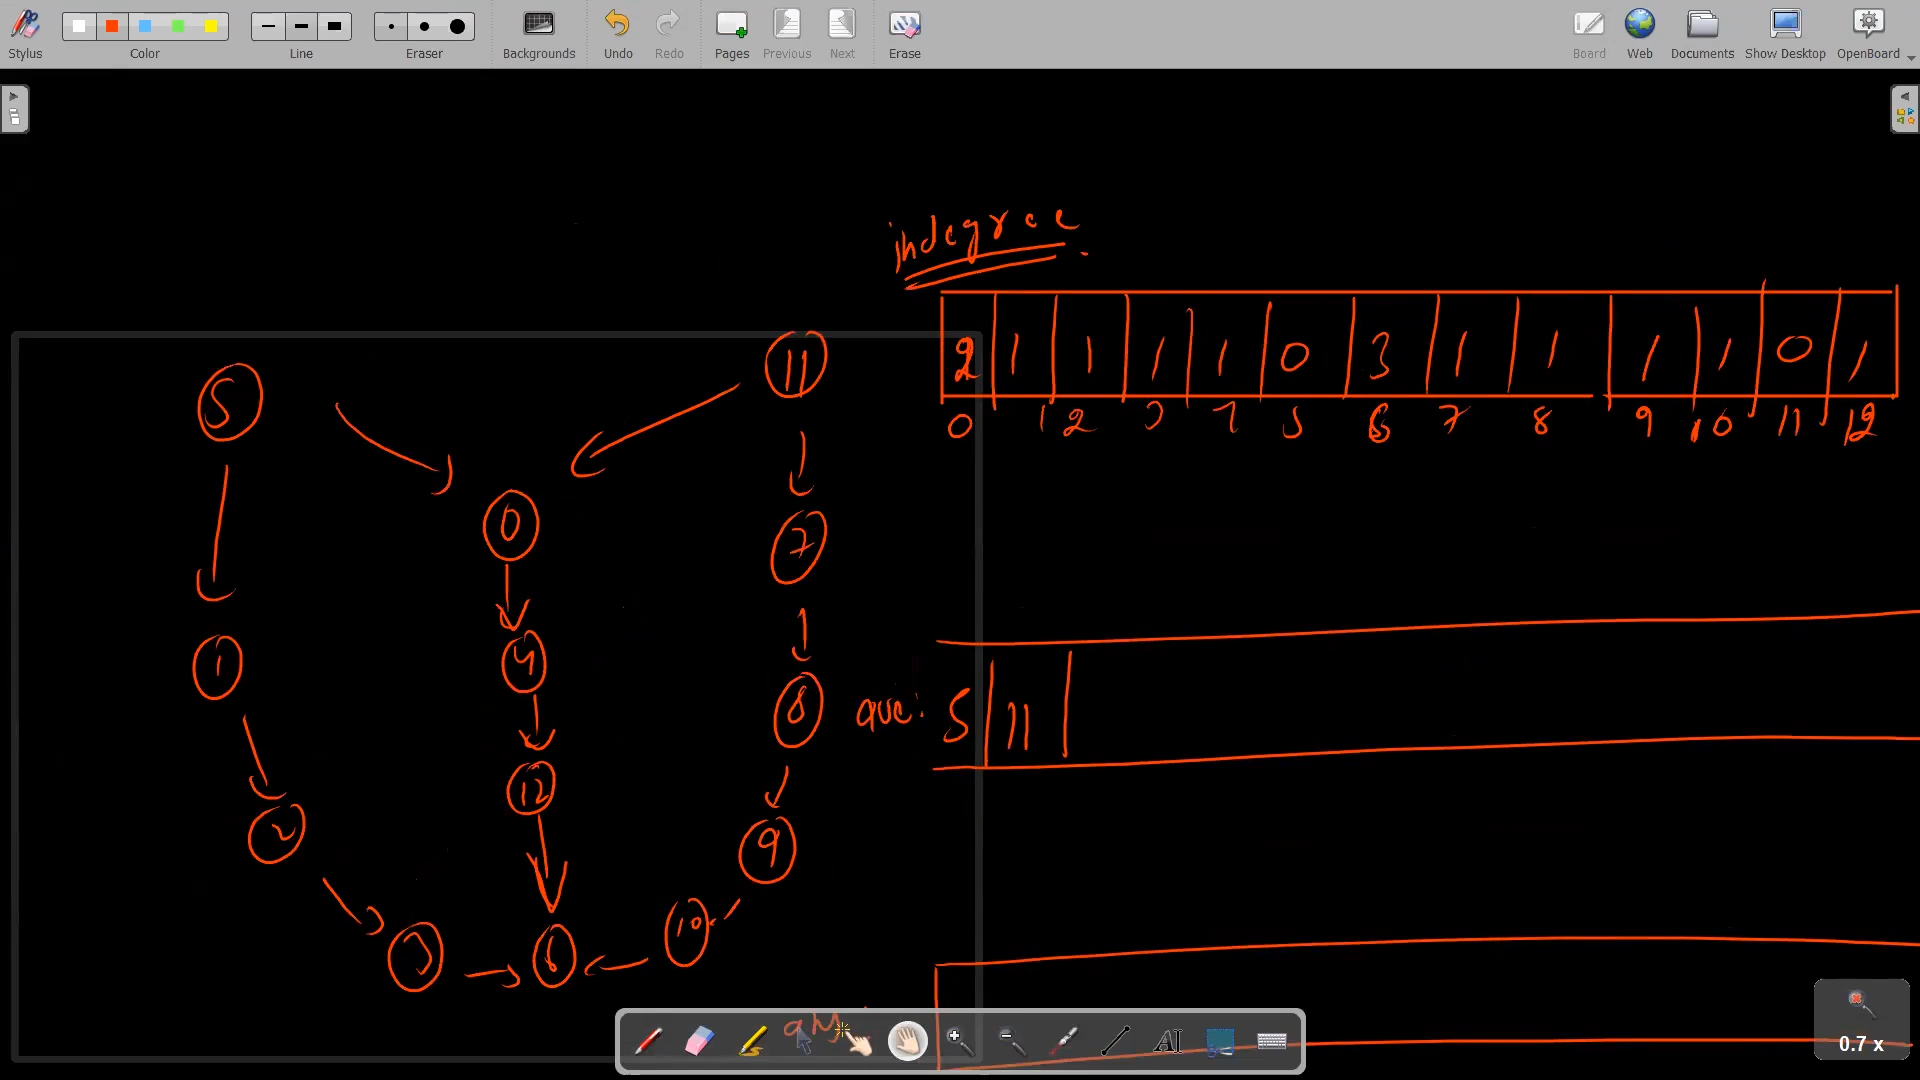 Stylus Color Line Eraser Backgrounds Undo Redo Pages Previous Next Erase Board Web Documents Show Desktop OpenBoard
indegree
2 1 1 1 1 0 3 1 1 1 1 0 1
0 1 2 3 4 5 6 7 8 9 10 11 12
5 11
0 7
1 4 8
que: 5 11
12
2 9
3 6 10
0.7 x